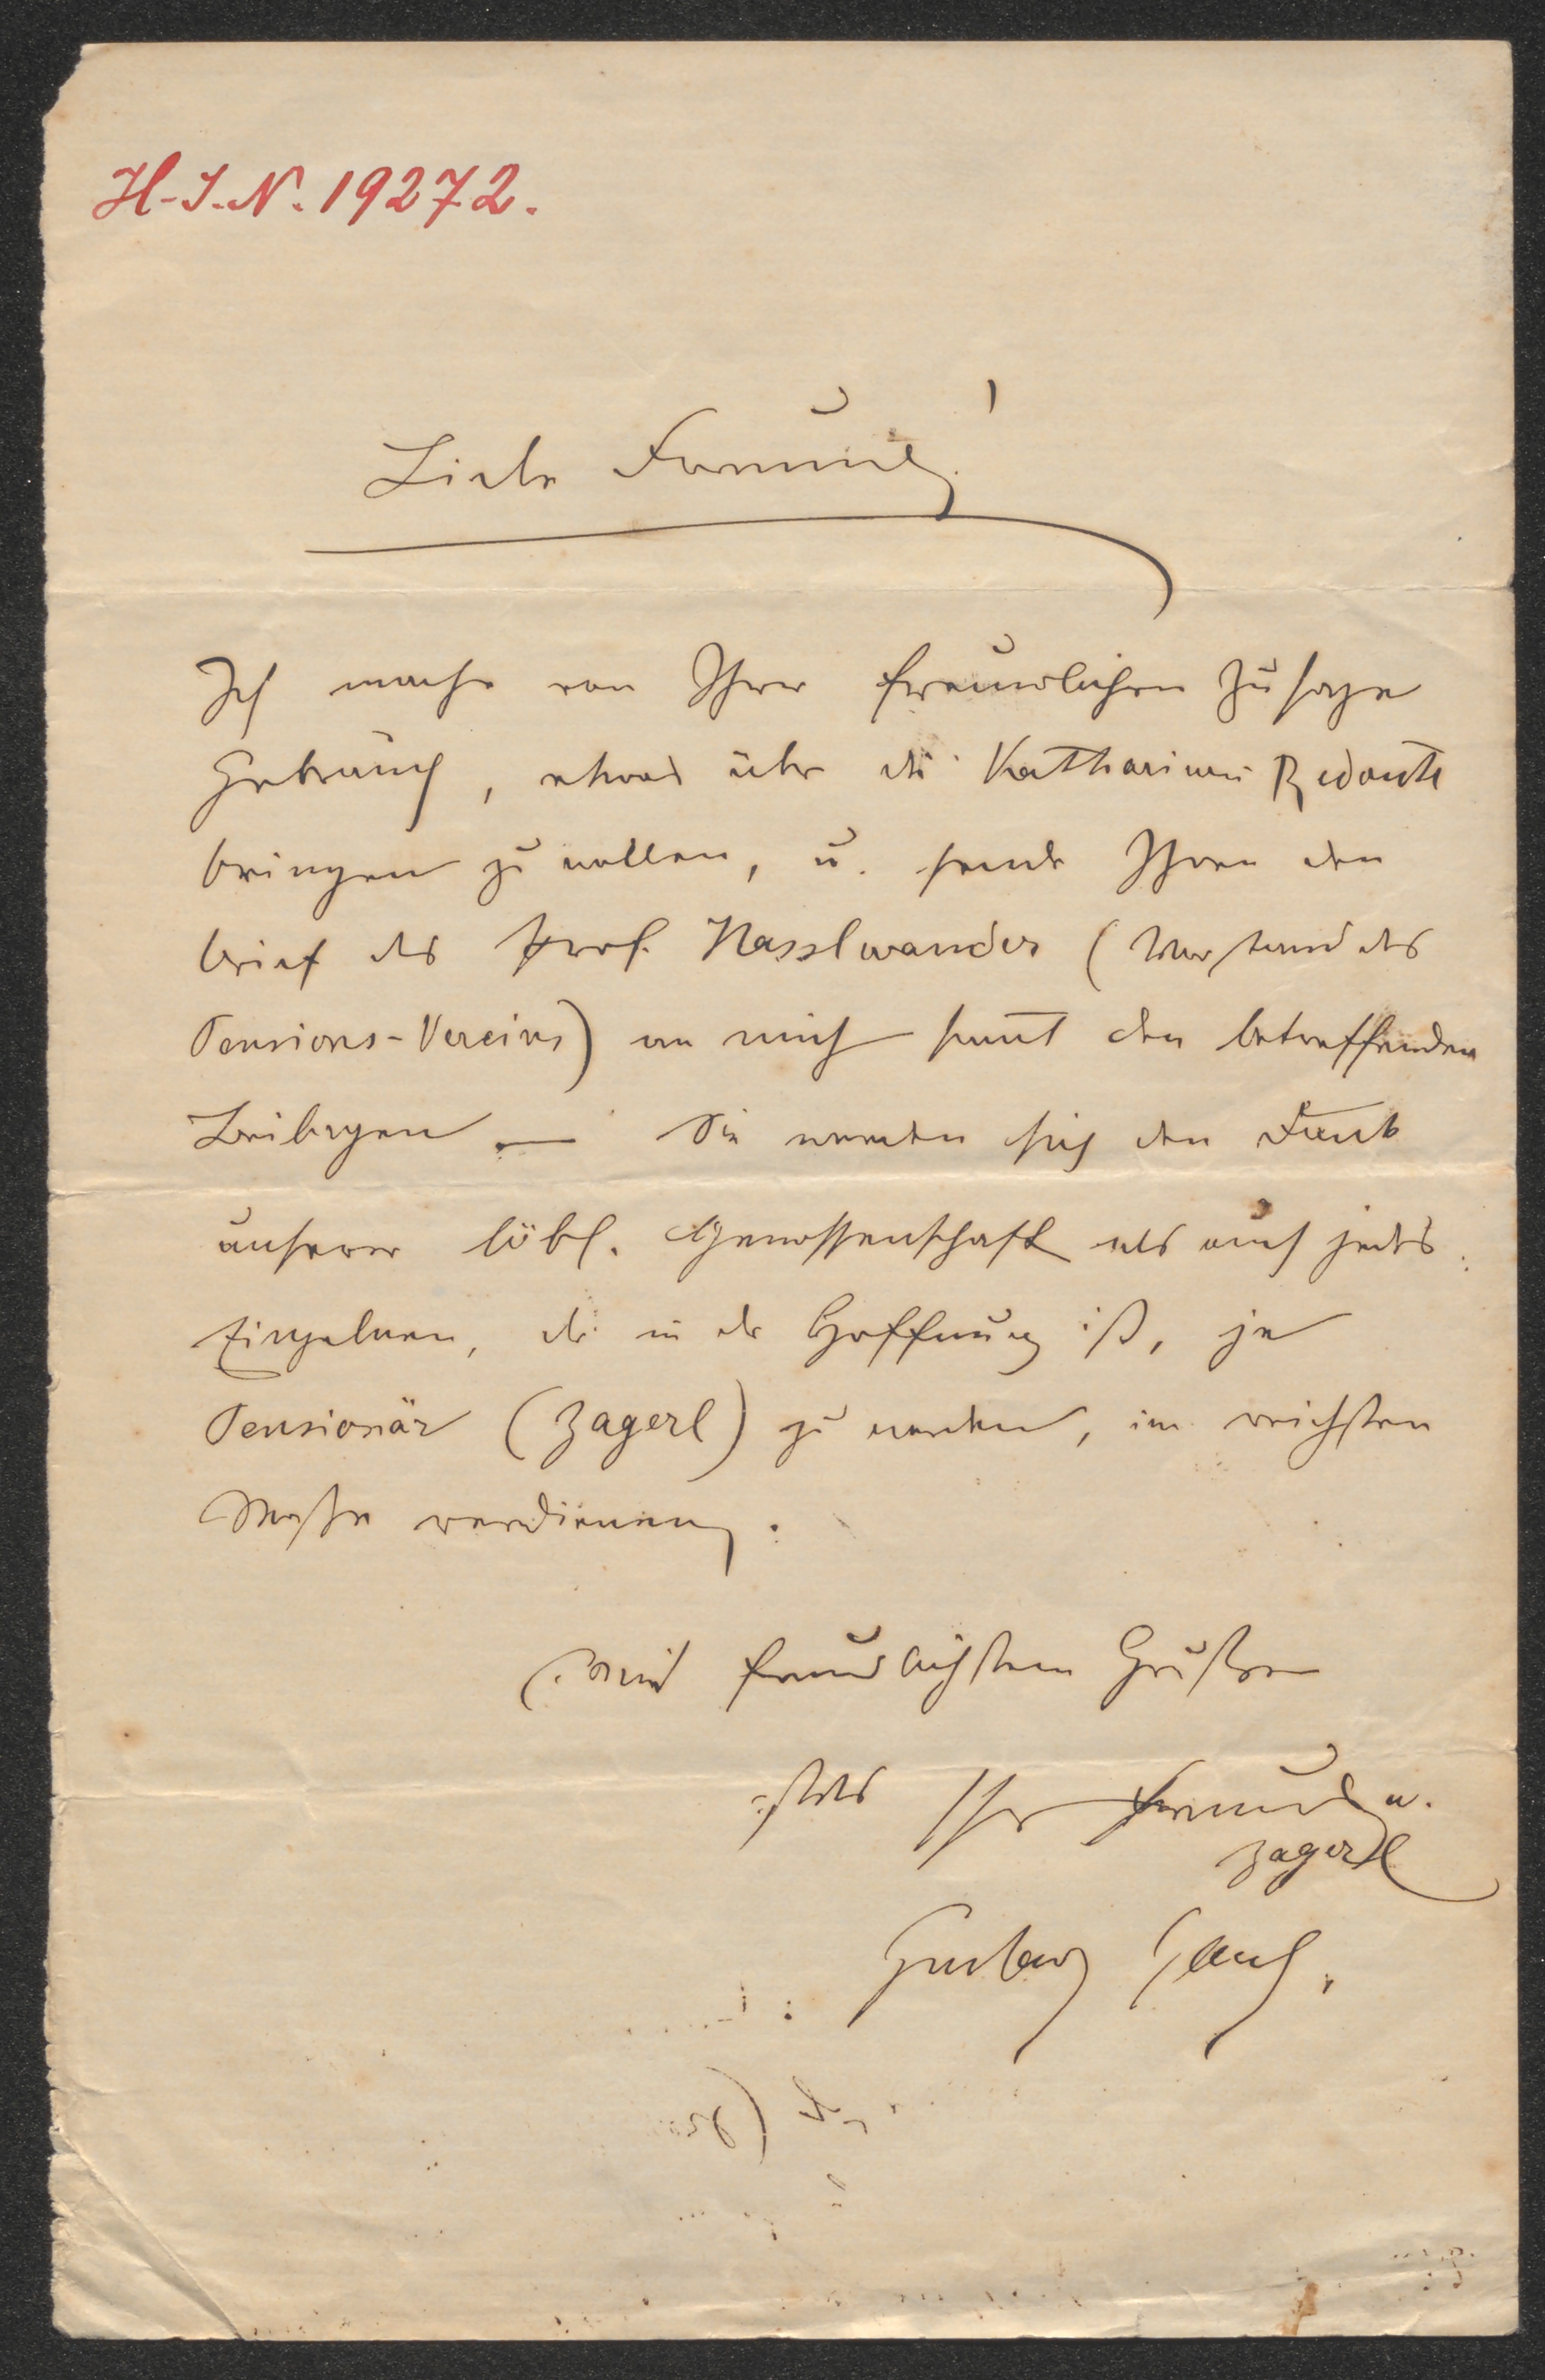 H.-I.-N. 19272.
Lieber Freund!
Ich mache von Ihrer freundlichen Zusage
Gebrauch, etwas über die Katharinen Redoute
bringen zu wollen, u. sende Ihnen den
Brief des Prof. Hasslwander (Vorstand des
Pensions-Vereins) an mich samt den betreffenden
Beilagen. — Sie werden sich den Dank
unserer löbl. Genossenschaft als auch jedes
Einzelnen, der in der Hoffnung ist, je
Pensionär (Zagerl) zu werden, im reichsten
Maße verdienen.
Mit freundlichsten Grüßen
stets Ihr Freund u.
Zagerl
Gustav